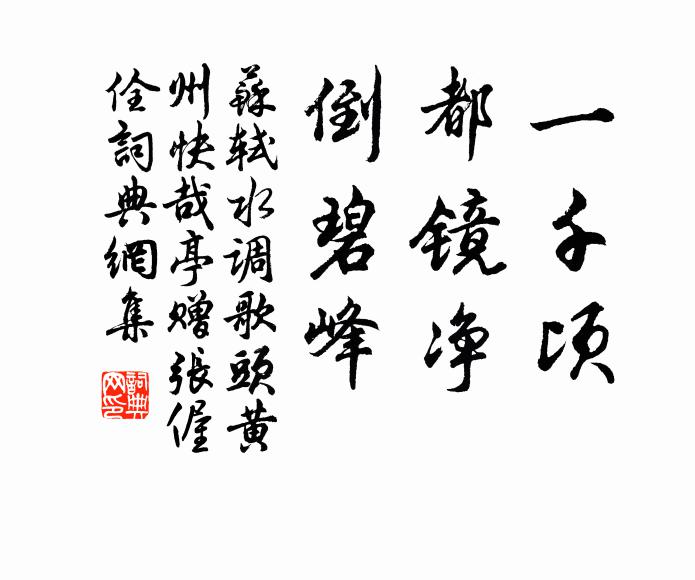 一千顷
都镜净
倒碧峰
蘇軾水调歌頭黄
州快哉亭赠張偓
佺詞典網集
詞典
网印